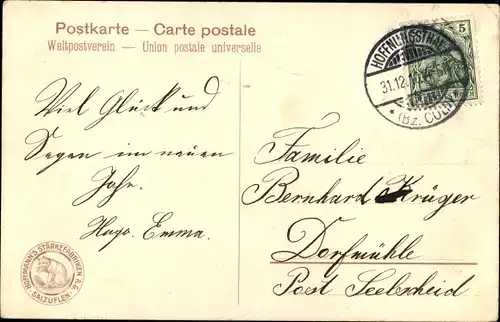 Postkarte — Carte postale
Weltpostverein — Union postale universelle
5
HOFFNUNGSTHAL
31.12.
* (Bz. CÖLN) *
Viel Glück und
Segen im neuen
Jahr.
Hugo. Emma.
Familie
Bernhard Krüger
Dorfmühle
Post Seelscheid
HOFFMANN'S STÄRKEFABRIKEN A.G.
SALZUFLEN